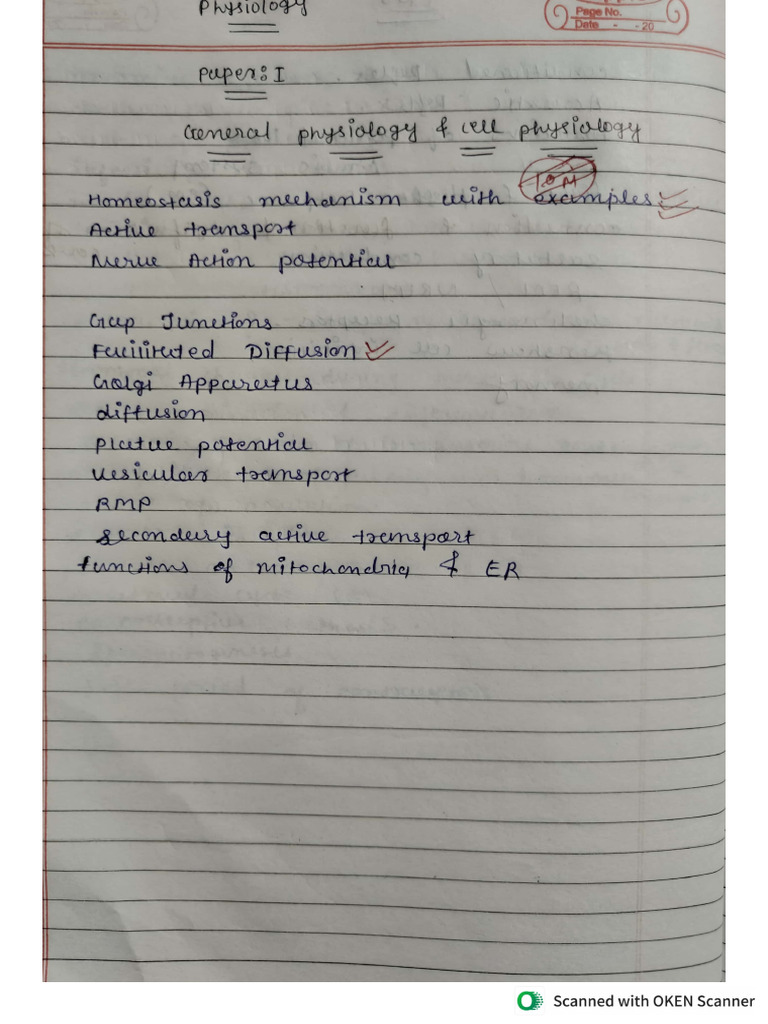 Physiology
Page No.
Date - - 20
Paper: I
General physiology & cell physiology
10M
Homeostasis mechanism with examples
Active transport
Nerve Action potential
Gap Junctions
Facilitated Diffusion
Golgi Apparatus
diffusion
Platue potential
Vesicular transport
RMP
secondary active transport
functions of mitochondria & ER
Scanned with OKEN Scanner